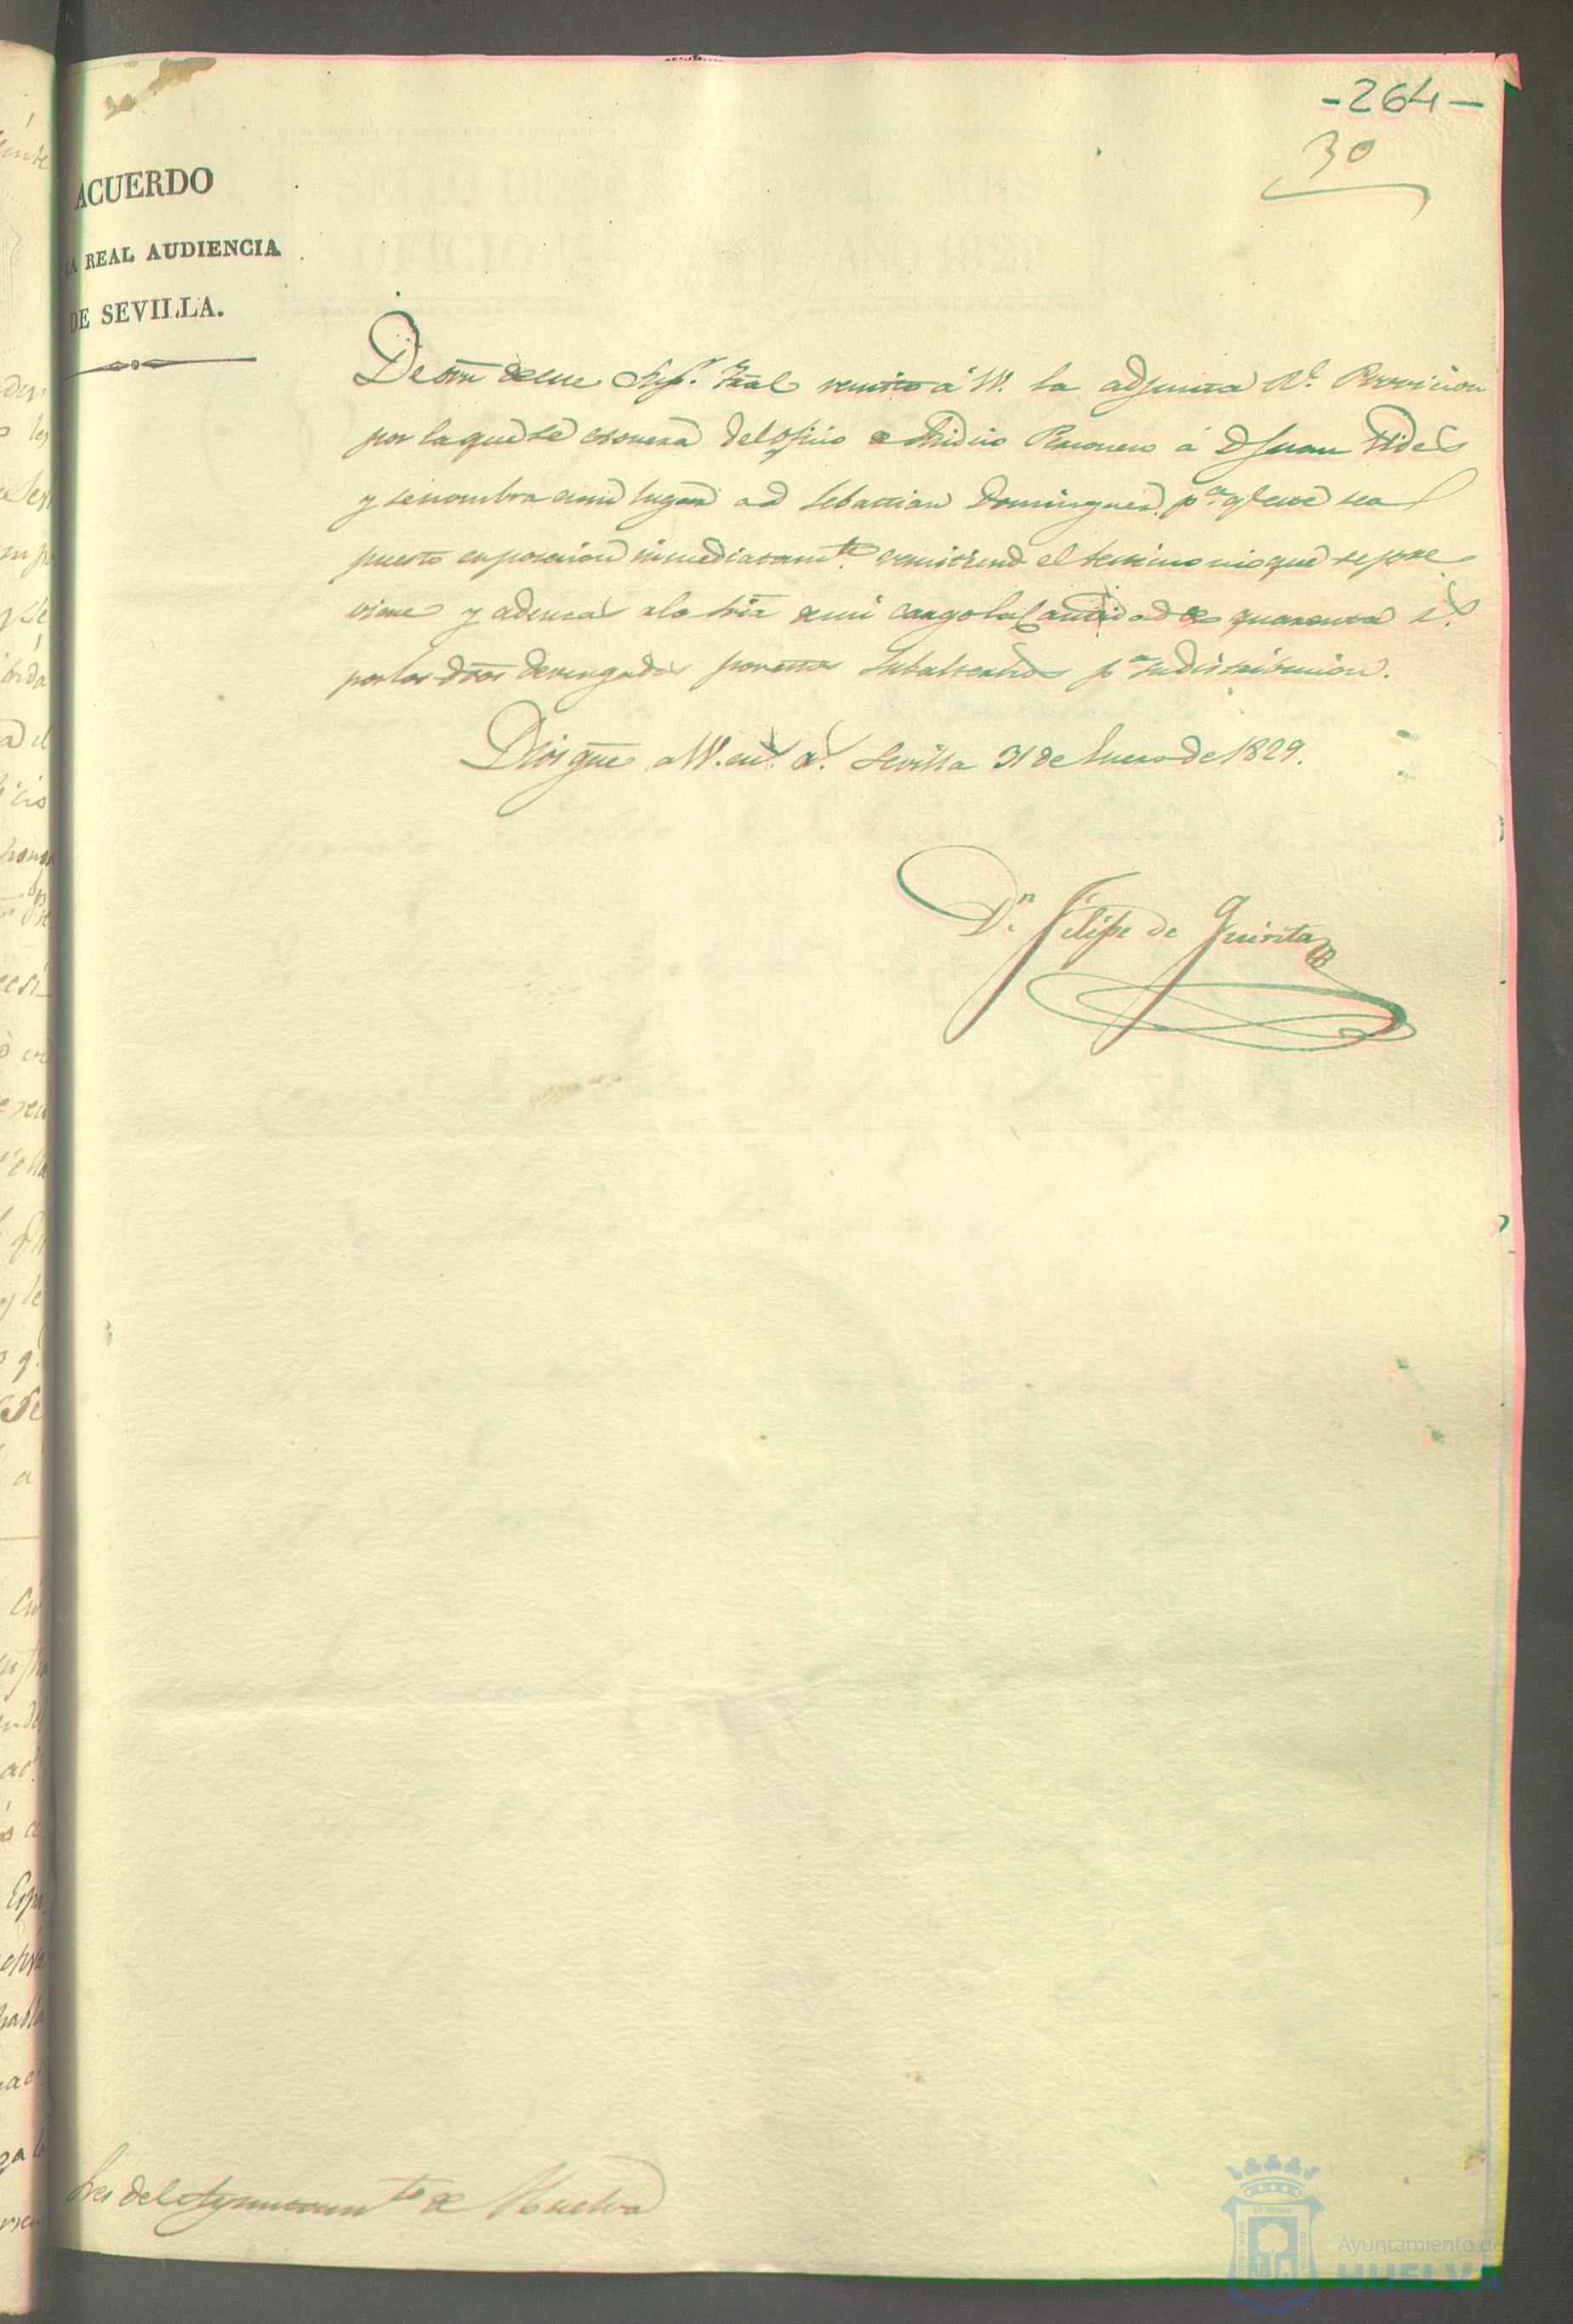 -264-
30
ACUERDO
LA REAL AUDIENCIA
DE SEVILLA.
De orn de este Supr. Trial remito á VV. la adjunta Rl. Provicion
por la que se exonera del oficio de Sindico Personero á D Juan
y se nombra en su lugar a D Sebastian Dominguez, pa. q. este sea
puesto en posesion inmediatamte. remitiendo el testimonio que se pre
viene y ademas a la Sria de mi cargo la Cantidad de quarenta rs.
por los dros devengados por estos Subalternos pa su distribucion.
Dios gue a VV. ms. as. Sevilla 31 de Enero de 1829.
Dn. Felipe de Quinta
Sres del Ayuntamto de Huelva
Ayuntamiento de
HUELVA